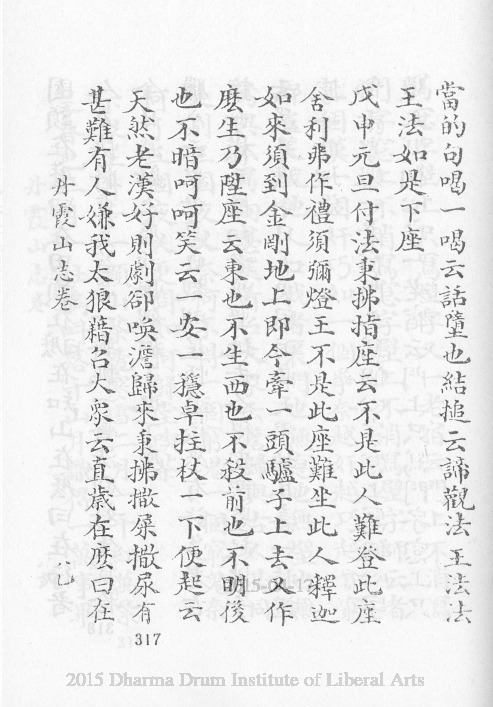 當的句喝一喝云話墮也結搥云諦觀法王法法
王法如是下座
戊申元旦付法秉拂指座云不是此人難登此座
舍利弗作禮須彌燈王不是此座難坐此人釋迦
如來須到金剛地上即今牽一頭驢子上去又作
麽生乃陞座云東也不生西也不殺前也不明後
也不暗呵呵笑云一安一穩卓拄杖一下便起云
天然老漢好則劇郤喚澹歸來秉拂撒屎撒尿有
甚難有人嫌我太狼藉召大眾云直歲在麽曰在
丹霞山志卷
八乀
317
2015 Dharma Drum Institute of Liberal Arts